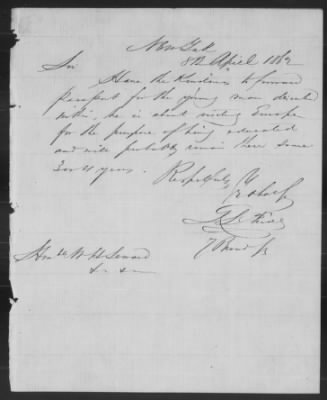 New York
8th April 1862
Sir
Have the kindness to forward
passport for the young man
within, he is about visiting Europe
for the purpose of being educated
and will probably remain there some
3 or 4 years.
Respectfully
7 Broad St
Honble W H Seward